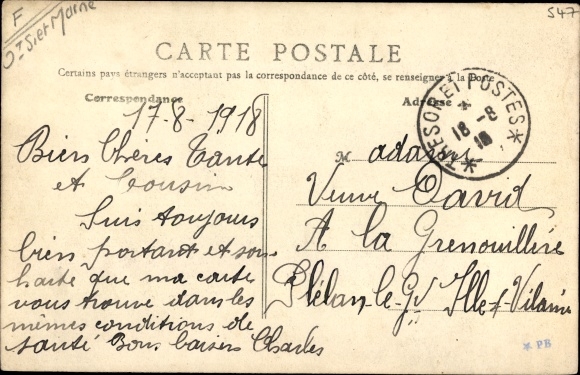 F
Dt S et Marne
547
CARTE POSTALE
Certains pays étrangers n'acceptant pas la correspondance de ce côté, se renseigner à la Poste
Correspondance
Adresse
TRESOR ET POSTES
18-8
18
17-8-1918
Bien Chères Tante
et Cousine
Suis toujours
bien portant et sou
haite que ma carte
vous trouve dans les
mêmes conditions de
santé Bons baisers Charles
M adame
Veuve David
A la Grenouillère
Plélan-le-Gd Ille-&-Vilaine
* PB